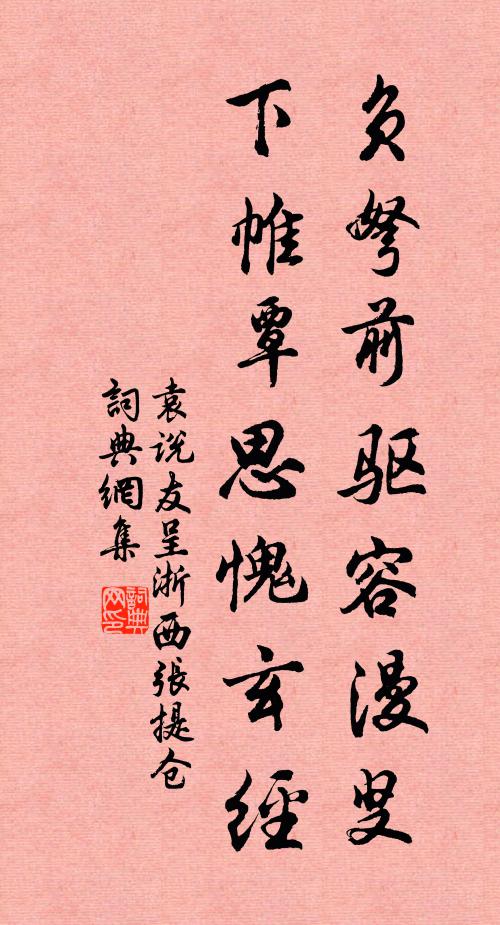 负弩前驱容漫叟
下帷覃思愧玄经
袁说友呈浙西張提仓
詞典網集
詞典网印